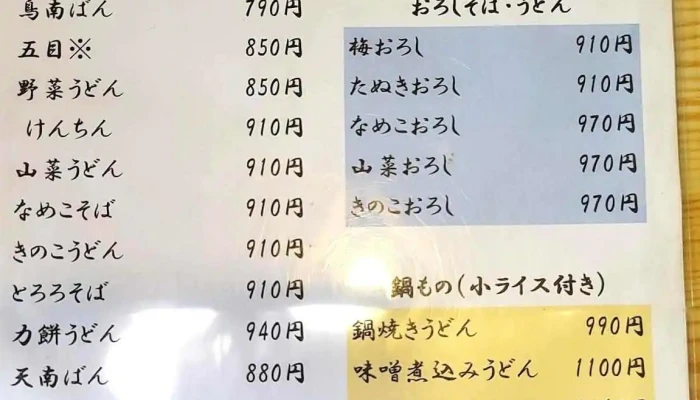 鳥南ばん 790円
五目※ 850円
野菜うどん 850円
けんちん 910円
山菜うどん 910円
なめこそば 910円
きのこうどん 910円
とろろそば 910円
力餅うどん 940円
天南ばん 880円
おろしそば・うどん
梅おろし 910円
たぬきおろし 910円
なめこおろし 970円
山菜おろし 970円
きのこおろし 970円
鍋もの(小ライス付き)
鍋焼きうどん 990円
味噌煮込みうどん 1100円